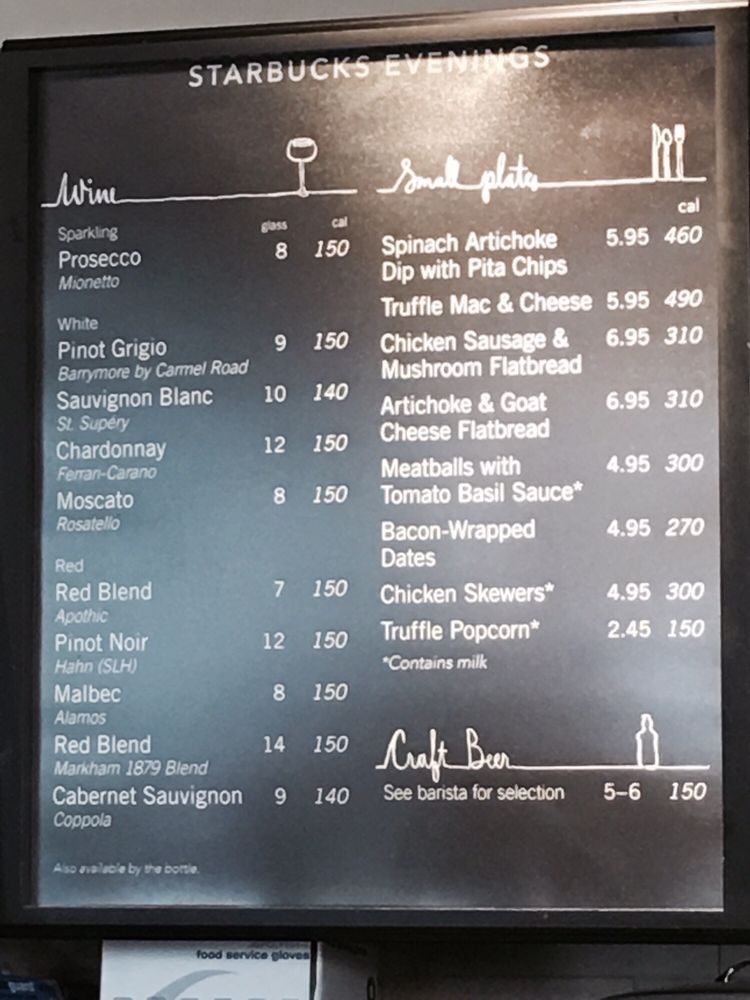 STARBUCKS EVENINGS
Wine
glass cal
Sparkling
Prosecco 8 150
Mionetto
White
Pinot Grigio 9 150
Barrymore by Carmel Road
Sauvignon Blanc 10 140
St. Supéry
Chardonnay 12 150
Ferrari-Carano
Moscato 8 150
Rosatello
Red
Red Blend 7 150
Apothic
Pinot Noir 12 150
Hahn (SLH)
Malbec 8 150
Alamos
Red Blend 14 150
Markham 1879 Blend
Cabernet Sauvignon 9 140
Coppola
Also available by the bottle.
Small plates
cal
Spinach Artichoke 5.95 460
Dip with Pita Chips
Truffle Mac & Cheese 5.95 490
Chicken Sausage & 6.95 310
Mushroom Flatbread
Artichoke & Goat 6.95 310
Cheese Flatbread
Meatballs with 4.95 300
Tomato Basil Sauce*
Bacon-Wrapped 4.95 270
Dates
Chicken Skewers* 4.95 300
Truffle Popcorn* 2.45 150
*Contains milk
Craft Beer
See barista for selection 5–6 150
food service gloves